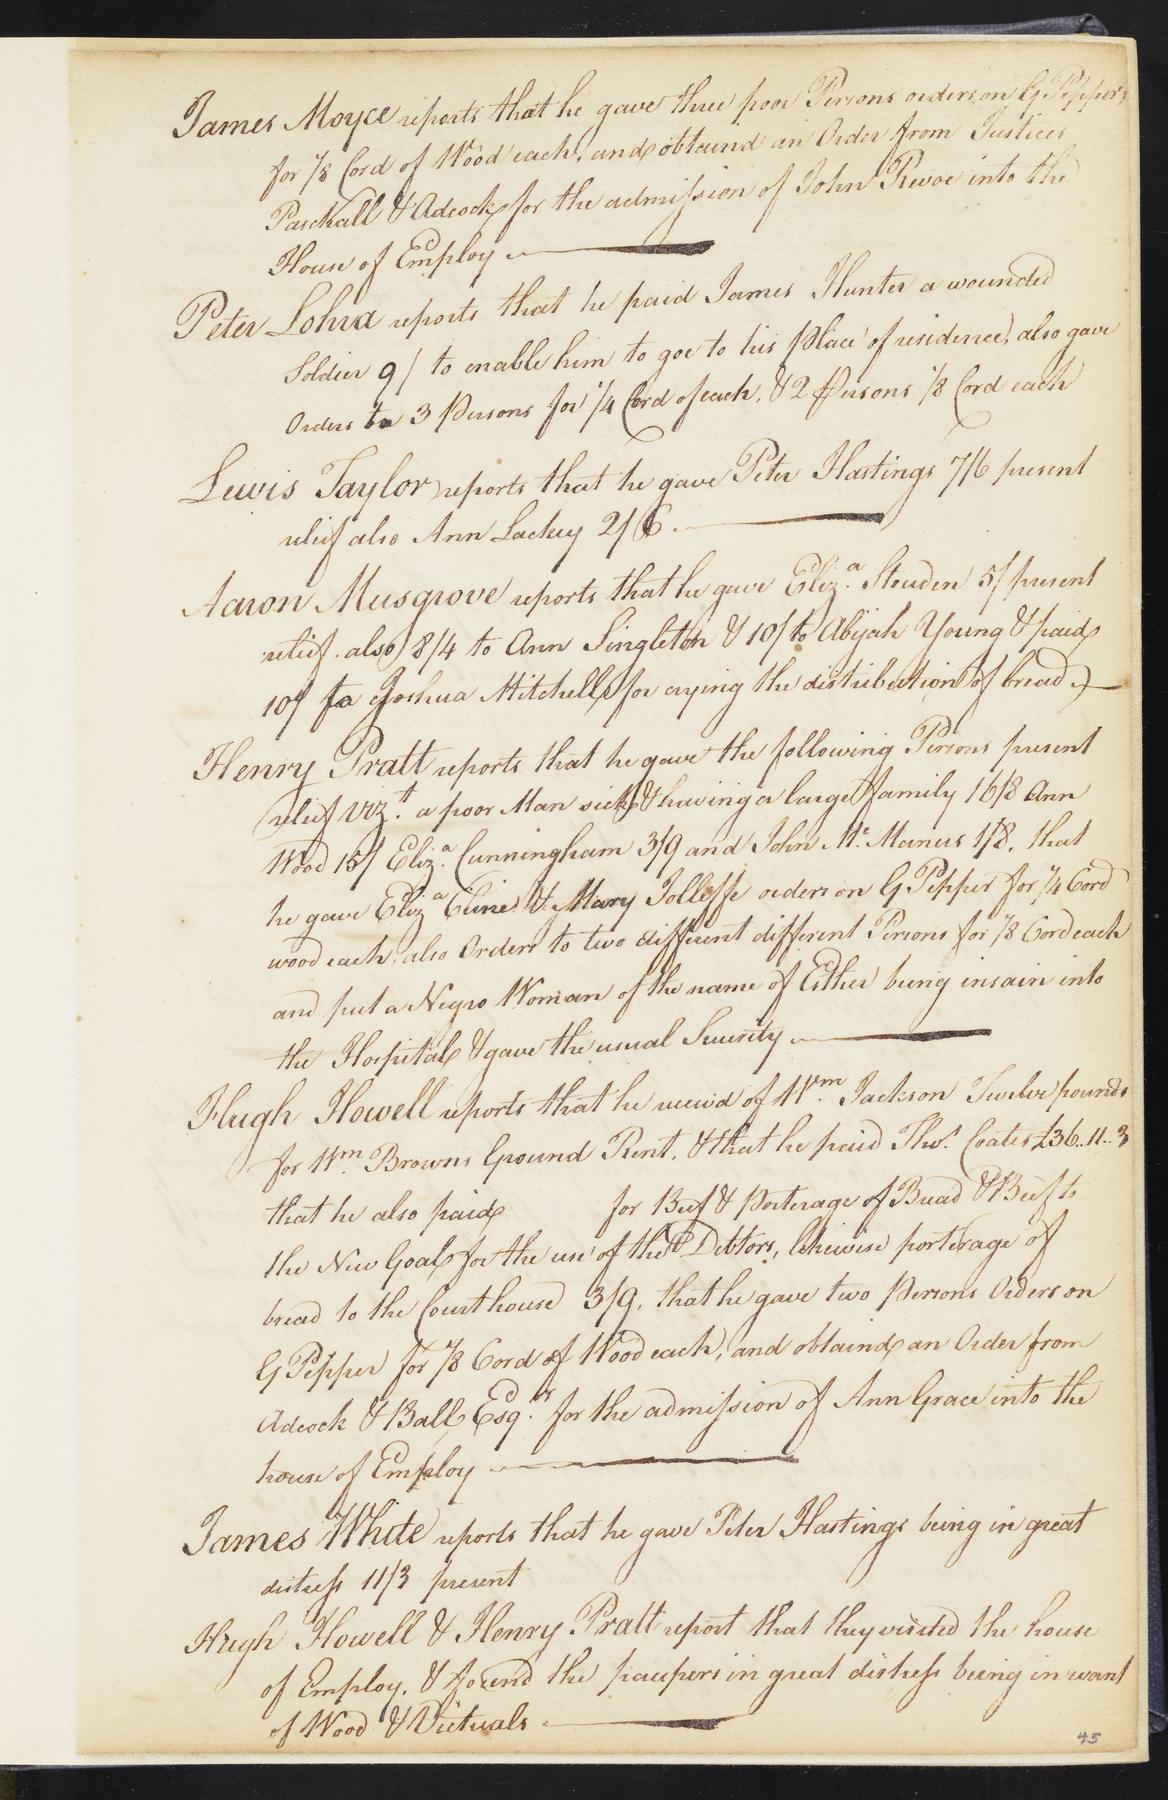 James Moyce reports that he gave three poor Persons orders on G Pepper
for 1/8 Cord of Wood each, and obtaind an Order from Justices
Paschall & Adcock for the admission of John Rivoe into the
House of Employ
Peter Lohra reports that he paid James Hunter a wounded
Soldier 9/ to enable him to goe to his place of residence, also gave
Orders to 3 Persons for 1/4 Cord of each, & 2 Persons 1/8 Cord each
Lewis Taylor reports that he gave Peter Hastings 7/6 present
releif also Ann Lackey 2/6.
Aaron Musgrove reports that he gave Eliz.a Steuden 5/ present
releif. also 8/4 to Ann Singleton & 10/ to Abijah Young & paid
10/ to Joshua Mitchell for crying the distribution of bread.
Henry Pratt reports that he gave the following Persons present
releif Viz.t a poor Man sick & having a large family 16/8 Ann
Wood 15/ Eliz.a Cunningham 3/9 and John Mc. Manus 1/8. that
he gave Eliz.a Cline & Mary Jolleffe orders on G Pepper for 1/4 Cord
wood each, also Orders to two different different Persons for 1/8 Cord each
and put a Negro Woman of the name of Esther being insain into
the Hospital & gave the usual Security
Hugh Howell reports that he receivd of Wm. Jackson Twelve pounds
for Wm. Browns Ground Rent, & that he paid Thos. Coates £36..11..3
that he also paid for Beef & Porterage of Bread & Beef to
the New Goal for the use of the Debtors, likewise porterage of
bread to the Courthouse 3/9, that he gave two Persons Orders on
G Pepper for 1/8 Cord of Wood each, and obtaind an Order from
Adcock & Ball Esq.rs for the admission of Ann Grace into the
house of Employ
James White reports that he gave Peter Hastings being in great
distress 11/3 present
Hugh Howell & Henry Pratt report that they visited the house
of Employ, & found the paupers in great distress being in want
of Wood & Victuals
45